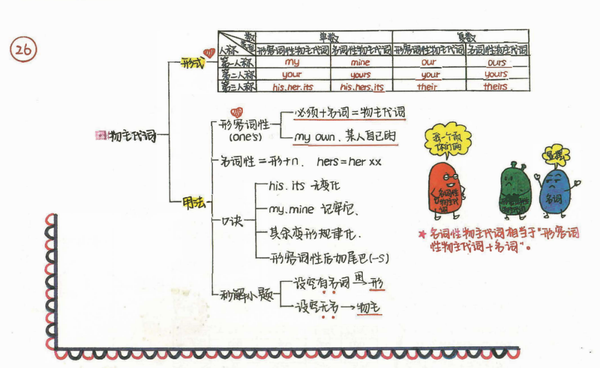 26
数 单数 复数
类型
人称 形容词性物主代词 名词性物主代词 形容词性物主代词 名词性物主代词
第一人称 my mine our ours
第二人称 your yours your yours
第三人称 his.her.its his.hers.its their theirs.
形式
物主代词
形容词性
(one's)
必须+名词=物主代词
my own. 某人自己的
名词性=形+n. hers=her xx
用法
口诀
his. its 无变化
my.mine 记牢它.
其余变形规律化.
形容词性后加尾巴(-s)
秒解小题
设空有名词 用→ 形
设空无名 → 物主
名词
★ 名词性物主代词相当于"形容词
性物主代词+名词"。